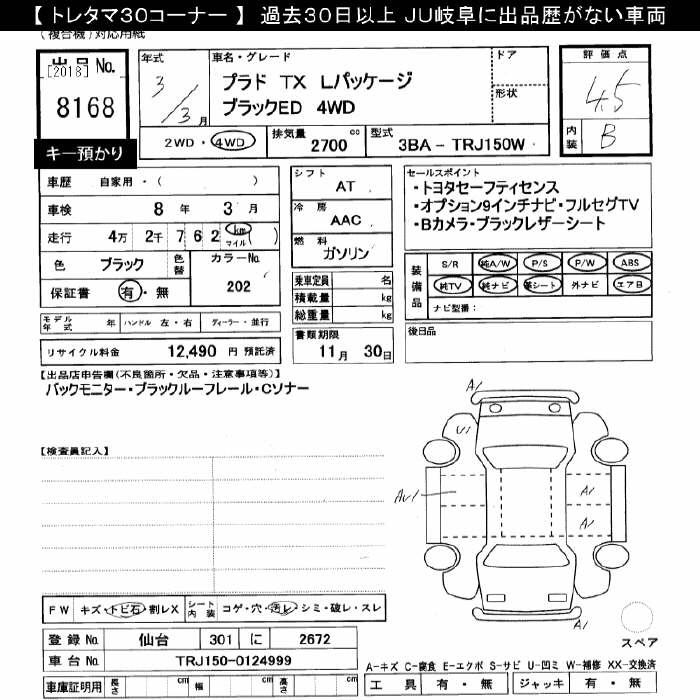 【 トレタマ30コーナー 】 過去30日以上 JU岐阜に出品歴がない車両
(複合機)対応用紙
出品 No.
[2018]
8168
キー預かり
年式
3/3 月
車名・グレード
プラド TX Lパッケージ
ブラックED 4WD
ドア
形状
2WD・4WD
排気量 2700 cc
型式 3BA - TRJ150W
評価点
4.5
内装 B
車歴 自家用・( )
車検 8 年 3 月
走行 4万 2千 7 6 2 km マイル ( )
色 ブラック 色替 カラーNo. 202
保証書 有・無
モデル年式 年 ハンドル 左・右 ディーラー・並行
リサイクル料金 12,490 円 預託済
シフト AT
冷房 AAC
燃料 ガソリン
乗車定員 名
積載量 kg
総重量 kg
書類期限
11月 30日
セールスポイント
・トヨタセーフティセンス
・オプション9インチナビ・フルセグTV
・Bカメラ・ブラックレザーシート
装備品
S/R 純A/W P/S P/W ABS
純TV 純ナビ 革シート 外ナビ エアB
ナビ型番：
後日品
【出品店申告欄(不良箇所・欠品・注意事項等)】
バックモニター・ブラックルーフレール・Cソナー
【検査員記入】
A1
U1
AU1
A1
A1
A1
FW キズ・トビ石・割レX シート内装 コゲ・穴・汚レ・シミ・破レ・スレ
登録 No. 仙台 301 に 2672
車台 No. TRJ150-0124999
車庫証明用 長さ cm 幅 cm 高さ cm
スペア
A-キズ C-腐食 E-エクボ S-サビ U-凹ミ W-補修 XX-交換済
工具 有・無 ジャッキ 有・無